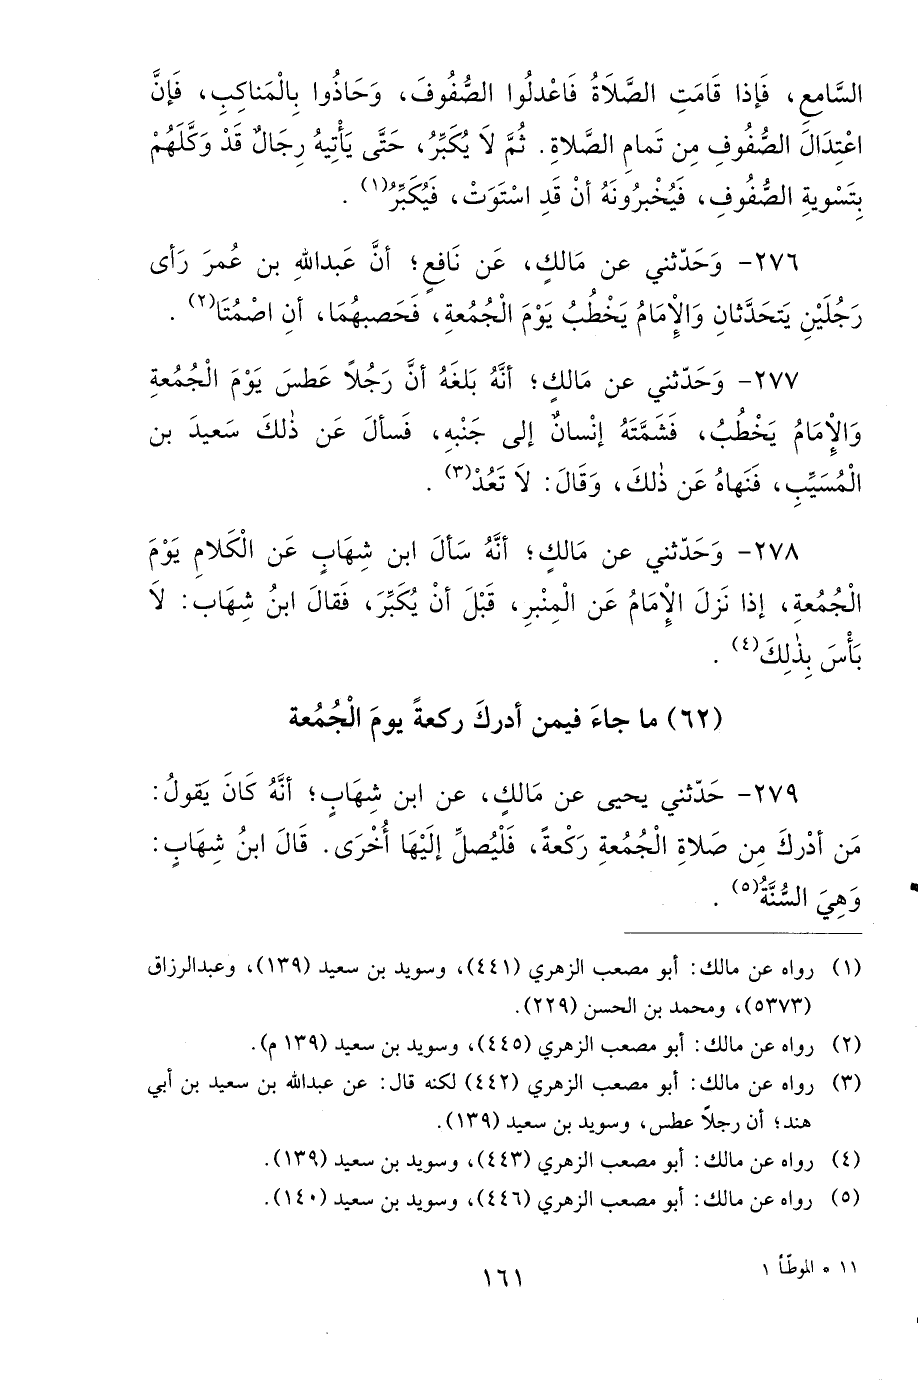 السَّامعِ، فَإذا قَامَتِ الصَّلَاةُ فَاعْدلُوا الصُّفُوفَ، وَحَاذُوا بِالْمَناكِبِ، فَإنَّ
اعْتِدَالَ الصُّفُوفِ مِن تَمامِ الصَّلاةِ. ثُمَّ لَا يُكَبِّرُ، حَتَّى يَأْتِيهُ رِجَالٌ قَدْ وَكَّلَهُمْ
بِتَسْويةِ الصُّفُوفِ، فَيُخْبِرُونَهُ أنْ قَدِ اسْتَوَتْ، فَيُكَبِّرُ(١) .
٢٧٦- وَحَدّثني عن مَالكٍ، عَن نَافعٍ؛ أنَّ عَبدالله بن عُمرَ رَأى
رَجُلَيْنِ يَتحَدَّثانِ وَالْإمَامُ يَخْطُبُ يَوْمَ الْجُمُعةِ، فَحَصبهُمَا، أن اصْمُتَا(٢) .
٢٧٧- وَحَدّثني عن مَالكٍ؛ أنَّهُ بَلغَهُ أنَّ رَجُلاً عَطسَ يَوْمَ الْجُمُعةِ
وَالْإمَامُ يَخْطُبُ، فَشَمَّتَهُ إنْسانٌ إلى جَنْبهِ، فَسألَ عَن ذٰلكَ سَعيدَ بن
الْمُسَيِّبِ، فَنَهاهُ عَن ذٰلكَ، وَقَالَ: لاَ تَعُدْ(٣) .
٢٧٨- وَحَدّثني عن مَالكٍ؛ أنَّهُ سَألَ ابن شِهَابٍ عَن الْكَلامِ يَوْمَ
الْجُمُعةِ، إذا نَزلَ الْإمَامُ عَن الْمِنْبرِ، قَبْلَ أنْ يُكَبِّرَ، فَقالَ ابنُ شِهَاب: لاَ
بَأْسَ بِذٰلِكَ(٤) .
(٦٢) ما جاءَ فيمن أدركَ ركعةً يومَ الْجُمُعة
٢٧٩- حَدّثني يحيى عن مَالكٍ، عن ابن شِهَابٍ؛ أنَّهُ كَانَ يَقولُ:
مَن أدْركَ مِن صَلاةِ الْجُمُعةِ رَكْعةً، فَلْيُصلِّ إلَيْهَا أُخْرَى. قَالَ ابنُ شِهَابٍ:
وَهِيَ السُّنَّةُ(٥) .
(١) رواه عن مالك: أبو مصعب الزهري (٤٤١)، وسويد بن سعيد (١٣٩)، وعبدالرزاق
(٥٣٧٣)، ومحمد بن الحسن (٢٢٩).
(٢) رواه عن مالك: أبو مصعب الزهري (٤٤٥)، وسويد بن سعيد (١٣٩ م).
(٣) رواه عن مالك: أبو مصعب الزهري (٤٤٢) لكنه قال: عن عبدالله بن سعيد بن أبي
هند؛ أن رجلاً عطس، وسويد بن سعيد (١٣٩).
(٤) رواه عن مالك: أبو مصعب الزهري (٤٤٣)، وسويد بن سعيد (١٣٩).
(٥) رواه عن مالك: أبو مصعب الزهري (٤٤٦)، وسويد بن سعيد (١٤٠).
١١ * الموطّأ ١
١٦١